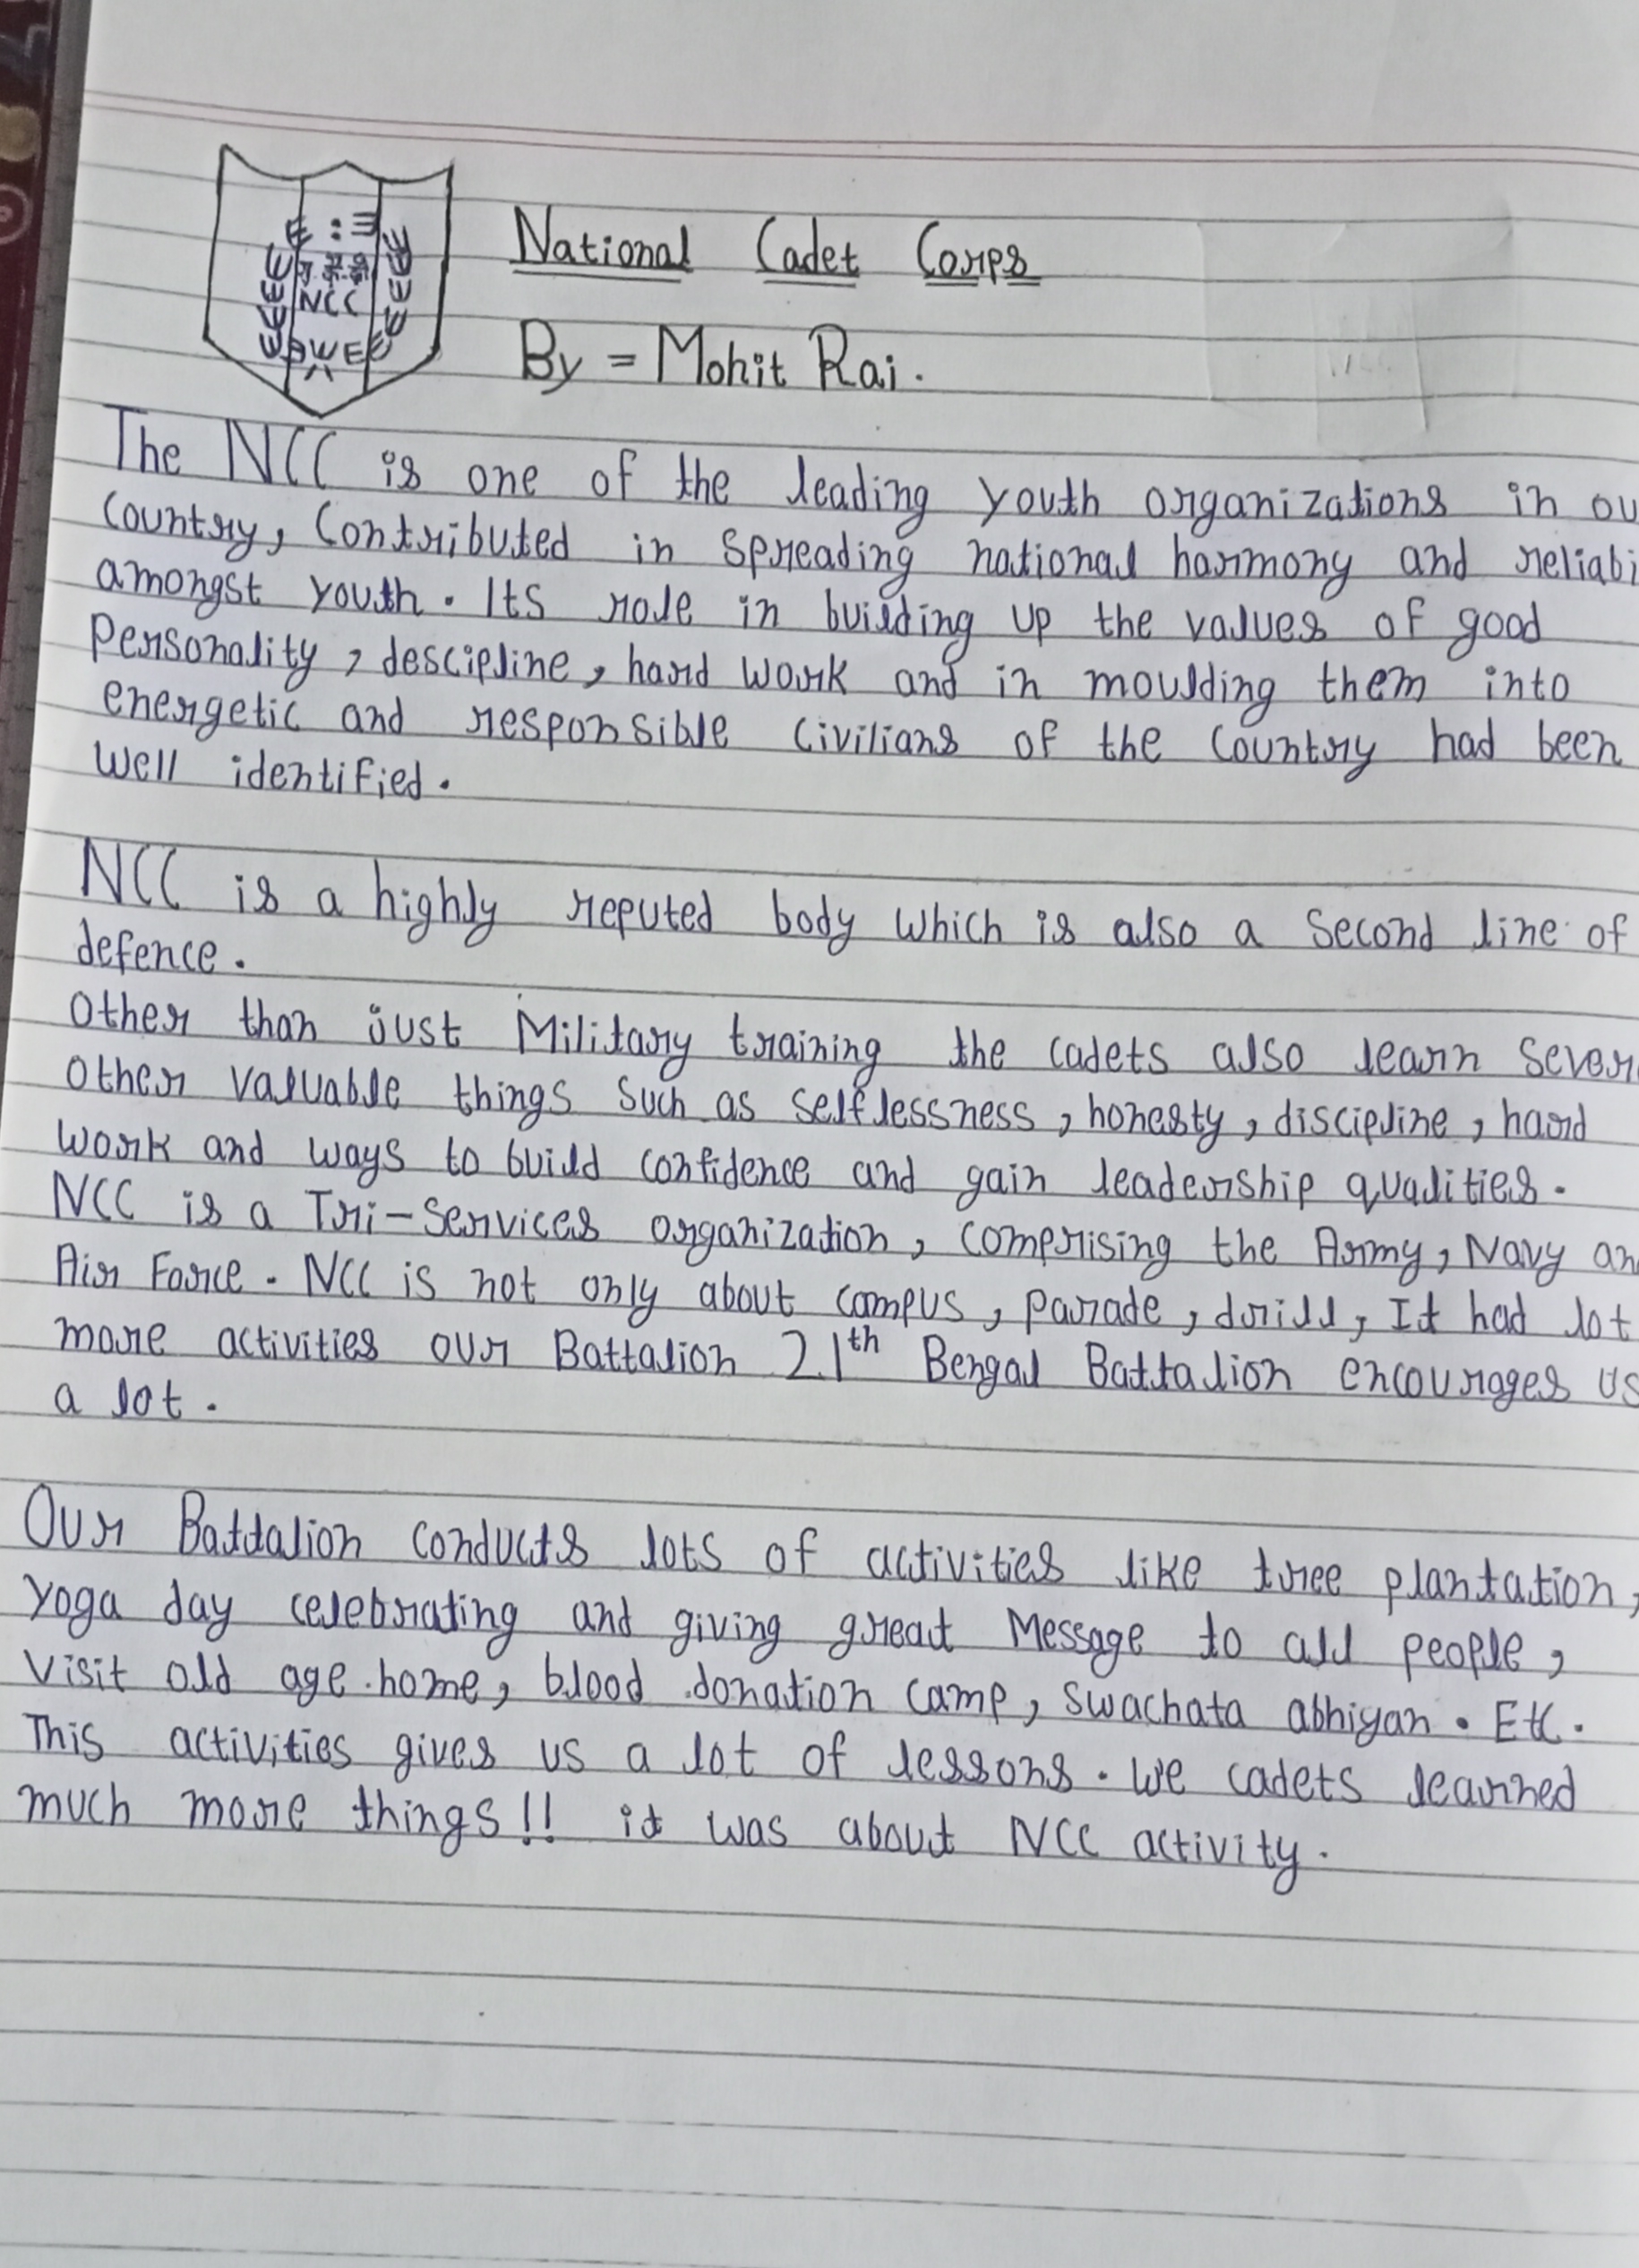 NCC
National Cadet Corps
By = Mohit Rai.
The NCC is one of the leading youth organizations in ou
Country, Contributed in spreading national harmony and reliabi
amongst youth. Its role in building up the values of good
Personality, descipline, hard work and in moulding them into
energetic and responsible Civilians of the Country had been
Well identified.
NCC is a highly reputed body which is also a Second line of
defence.
Other than just Military training the cadets also learn Sever
Other valuable things Such as selflessness, honesty, discipline, hard
work and ways to build confidence and gain leadership qualities.
NCC is a Tri-Services organization, comprising the Army, Navy an
Air Force. NCC is not only about campus, parade, drill, It had lot
more activities our Battalion 21th Bengal Battalion encourages us
a lot.
Our Battalion conducts lots of activities like tree plantation,
Yoga day celebrating and giving great Message to all people,
Visit old age home, blood donation camp, swachata abhiyan. Etc.
This activities gives us a lot of lessons. We cadets learned
much more things!! it was about NCC activity.